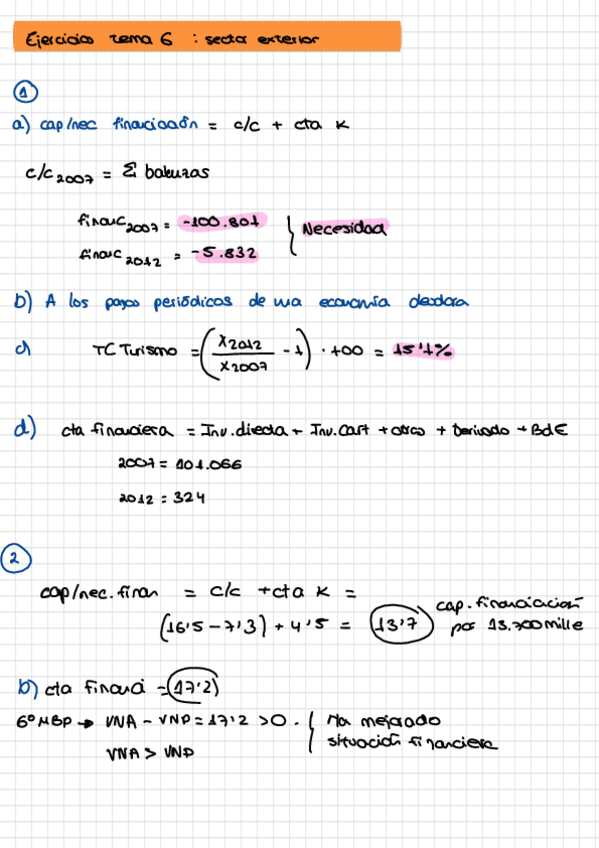 Ejercicios tema 6 : sector exterior
1
a) cap/nec financiación = c/c + cta K
c/c 2007 = Σ balanzas
financ 2007 = -100.801
financ 2012 = -5.832
} Necesidad
b) A los pagos periódicos de una economía deudora
c) TC Turismo = (X2012 / X2007 - 1) · 100 = 15'1%
d) cta financiera = Inv. directa + Inv. Cart + otros + Derivado + BdE
2007 = 101.066
2012 = 324
2
cap/nec. finan = c/c + cta K =
(16'5 - 7'3) + 4'5 = 13'7
cap. financiación
por 13.700 mille
b) cta financi = 17'2)
6º MBP → VNA - VNP = 17'2 > 0. { Ha mejorado
situación financiera
VNA > VNP